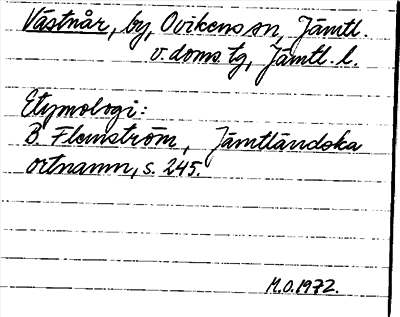 Västnår, by, Ovikens sn, Jämtl.
v. doms. tg, Jämtl. l.
Etymologi:
B. Flemström, Jämtländska
ortnamn, s. 245.
M.O. 1972.